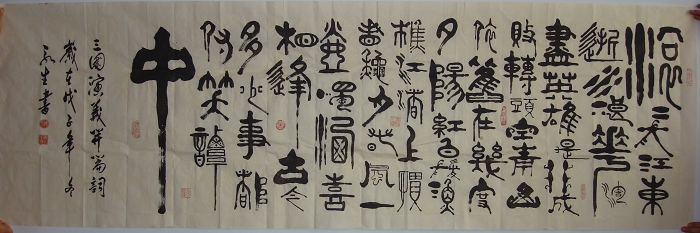 滚滚長江東
逝水浪花淘
盡英雄是非成
敗轉頭空青山
依舊在幾度
夕陽紅白髮漁
樵江渚上慣
看秋月春風一
壺濁酒喜
相逢古今
多少事都
付笑談
中
三国演義開篇詞
歲在戊子年冬
書